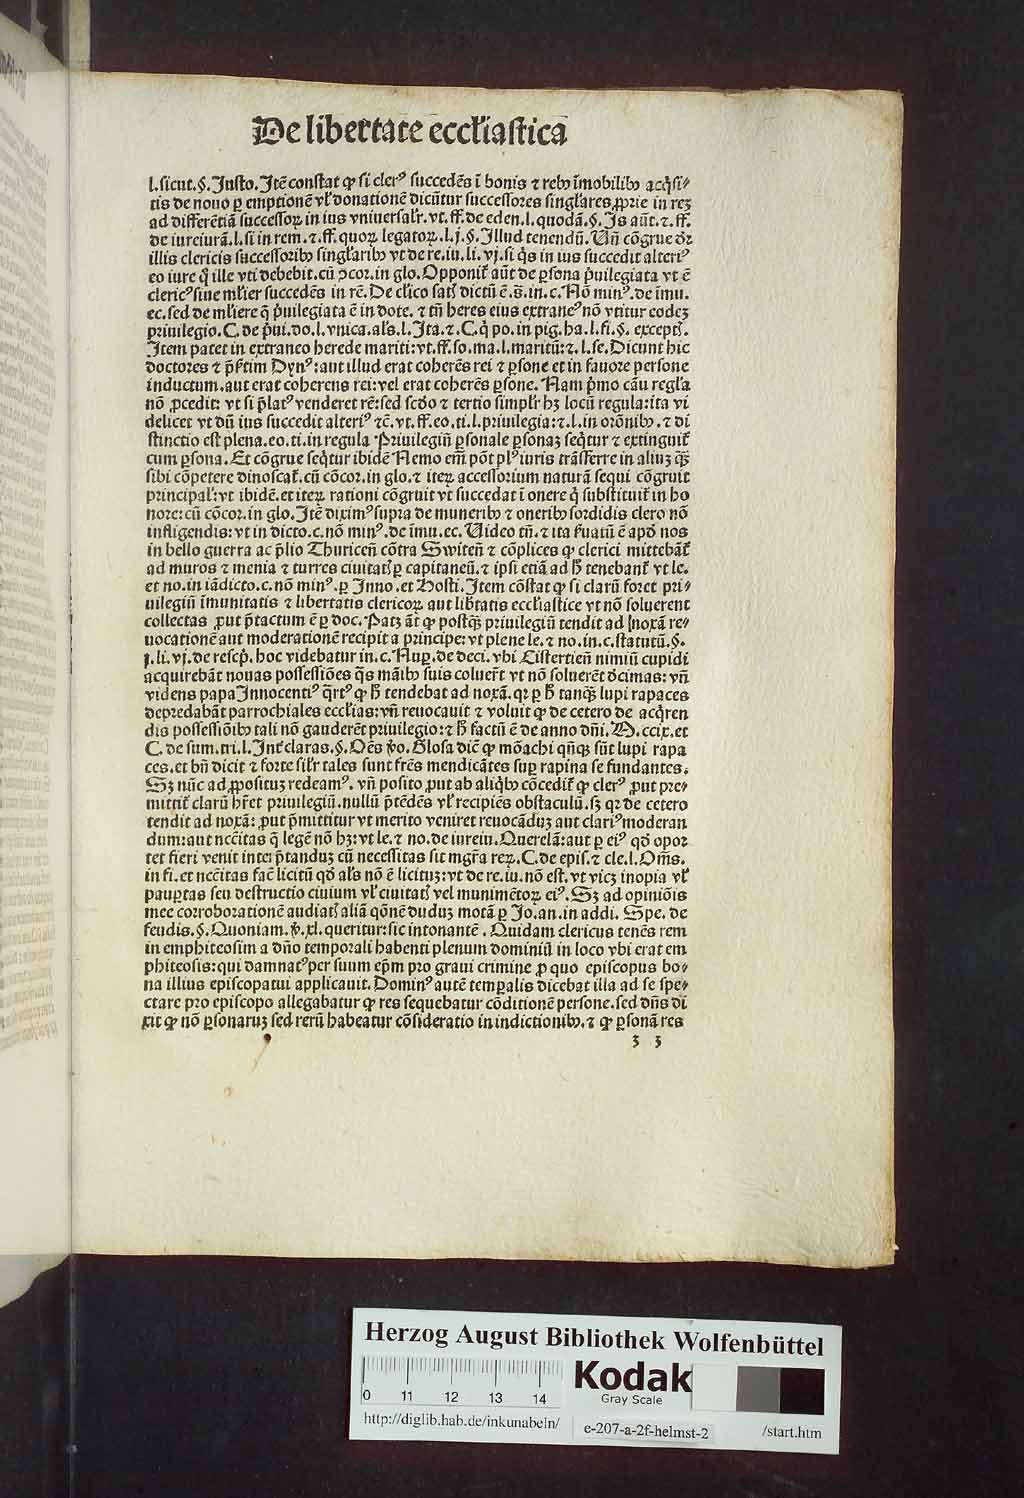 De libertate eccl'iastica
l. sicut. §. Justo. Itē constat ꝙ si cler⁹ succedēs ī bonis ⁊ rebꝰ īmobilibꝰ acq̄si⸗
tis de nouo ꝑ emptionē vl' donationē dicūtur successores singl'ares ꝓprie in reꝫ
ad differētiā successoꝝ in ius vniuersal'r. vt. ff. de eden. l. quodā. §. Is aūt. ⁊. ff.
de iureiurā. l. si in rem. ⁊. ff. quoꝝ legatoꝝ. l. j. §. Illud tenendū. Uñ cōgrue dr̄
illis clericis successoribꝰ singl'aribꝰ vt de re. iu. li. vj. si q̄s in ius succedit alteri⁹
eo iure q̄ ille vti debebit. cū ↄcor. in glo. Opponit᷑ aūt de ꝑsona p̄uilegiata vt ē
cleric⁹ siue ml'ier succedēs in rē. De cl'ico satꝭ dictū ē. s̄. in. c. Nō min⁹. de īmu.
ec. sed de ml'iere q̄ p̄uilegiata ē in dote. ⁊ tn̄ heres eius extrane⁹ nō vtitur codeꝫ
priuilegio. C. de p̄ui. do. l. vnica. al's. l. Ita. ⁊. C. q̄ po. in pig. ha. l. fi. §. exceptꝭ.
Item patet in extraneo herede mariti: vt. ff. so. ma. l. maritū: ⁊. l. se. Dicunt hic
doctores ⁊ p̄s̄tim Dyn⁹: aut illud erat coherēs rei ⁊ ꝑsone et in fauore persone
inductum. aut erat coherens rei: vel erat coherēs ꝑsone. Nam p̄mo cāu regl'a
nō ꝓcedit: vt si p̄lat⁹ venderet rē: sed scd̄o ⁊ tertio simpl'r hꝫ locū regula: ita vi
delicet vt dū ius succedit alteri⁹ ⁊c̄. vt. ff. eo. ti. l. priuilegia: ⁊. l. in om̄nibꝰ. ⁊ di
stinctio est plena. eo. ti. in regula Priuilegiū ꝑsonale ꝑsonaꝫ seq̄tur ⁊ extinguit᷑
cum ꝑsona. Et cōgrue seq̄tur ibidē Nemo em̄ pōt pl⁹ iuris trāsferre in aliuꝫ qꝫ
sibi cōpetere dinoscat᷑. cū cōcor. in glo. ⁊ iteꝝ accessorium naturā sequi cōgruit
principal': vt ibidē. et iteꝝ rationi cōgruit vt succedat ī onere q̄ substituit᷑ in ho
nore: cū cōcor. in glo. Itē dixim⁹ supra de muneribꝰ ⁊ oneribꝰ sordidis clero nō
infligendis: vt in dicto. c. nō min⁹. de īmu. ec. Uideo tn̄. ⁊ ita s̄uatū ē apd̄ nos
in bello guerra ac p̄lio Thuricen̄ cōtra Switen̄ ⁊ cōplices ꝙ clerici mittebāt᷑
ad muros ⁊ menia ⁊ turres ciuitatꝭ ꝑ capitaneū. ⁊ ipsi etiā ad h̄ tenebant᷑ vt le.
et no. in iādicto. c. nō min⁹. ꝑ Inno. et Hosti. Item cōstat ꝙ si clarū foret pri⸗
uilegiū īmunitatis ⁊ libertatis clericoꝝ aut lib̄tatis eccl'iastice vt nō soluerent
collectas ꝓut p̄tactum ē ꝑ doc. Patꝫ āt ꝙ postqꝫ priuilegiū tendit ad noxā re⸗
uocationē aut moderationē recipit a principe: vt plene le. ⁊ no. in. c. statutū. §.
j. li. vj. de rescp̄. hoc videbatur in. c. Nuꝑ. de deci. vbi Cistertien̄ nimiū cupidi
acquirebāt nouas possessiōes q̄s māibꝰ suis coluer̄t vt nō soluerēt decimas: vn̄
videns papa Innocenti⁹ q̄rt⁹ ꝙ h̄ tendebat ad noxā. qꝛ ꝑ h̄ tanqꝫ lupi rapaces
depredabāt parrochiales eccl'ias: vn̄ reuocauit ⁊ voluit ꝙ de cetero de acq̄ren
dis possessiōibꝰ tali nō gauderēt priuilegio: ⁊ h̄ factū ē de anno dn̄i. M. ccix. et
C. de sum. tri. l. Int̄ claras. §. Oēs v̄o. Glosa dic̄ ꝙ mōachi qn̄qꝫ sūt lupi rapa
ces. et bn̄ dicit ⁊ forte sil'r tales sunt fr̄es mendicātes suꝑ rapina se fundantes.
Sꝫ nūc ad ꝓposituꝫ redeam⁹. vn̄ posito ꝓut ab aliq̄bꝰ cōcedit᷑ ꝙ cler⁹ ꝓut pre⸗
mittit᷑ clarū hr̄et priuilegiū. nullū p̄tēdēs vl' recipiēs obstaculū. sꝫ qꝛ de cetero
tendit ad noxā: ꝓut p̄mittitur vt merito veniret reuocāduꝫ aut clari⁹ moderan
dum: aut nc̄citas q̄ legē nō hꝫ: vt le. ⁊ no. de iureiu. Querelā: aut ꝑ ei⁹ qd̄ opor
tet fieri venit inter p̄tanduꝫ cū necessitas sit mgr̄a reꝝ. C. de epis. ⁊ cle. l. Om̄s.
in fi. et nc̄citas fac̄ licitū qd̄ al's nō ē licituꝫ: vt de re. iu. nō est. vt vicꝫ inopia vl'
pauꝑtas seu destructio ciuium vl' ciuitatꝭ vel munimētoꝝ ei⁹. Sꝫ ad opiniōis
mee corroborationē audiatꝭ aliā qōnē duduꝫ motā ꝑ Jo. an. in addi. Spe. de
feudis. §. Quoniam. v̄. xl. queritur: sic intonantē. Quidam clericus tenēs rem
in emphiteosim a dn̄o temporali habenti plenum dominiū in loco vbi erat em
phiteosis: qui damnat⁹ per suum ep̄m pro graui crimine ꝓ quo episcopus bo⸗
na illius episcopatui applicauit. Domin⁹ autē temꝑalis dicebat illa ad se spe⸗
ctare pro episcopo allegabatur ꝙ res sequebatur cōditionē persone. sed dn̄s di
xit ꝙ nō ꝑsonaruꝫ sed rerū habeatur cōsideratio in indictionibꝰ. ⁊ ꝙ ꝑsonā res
ʒ 3
Herzog August Bibliothek Wolfenbüttel
Kodak
Gray Scale
0 11 12 13 14
http://diglib.hab.de/inkunabeln/ e-207-a-2f-helmst-2 /start.htm